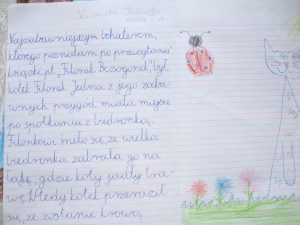 Najzabawniejszym bohaterem,
którego poznałam po przeczytaniu
książki pt. „Filonek Bezogonek", był
kotek Filonek. Jedna z jego zaba-
wnych przygód miała miejsce
po spotkaniu z biedronką.
Filonkowi śniło się, że wielka
biedronka zabrała go na
łąkę, gdzie koty jadły tra-
wę. Wtedy kotek przeraził
się, że zostanie krową.